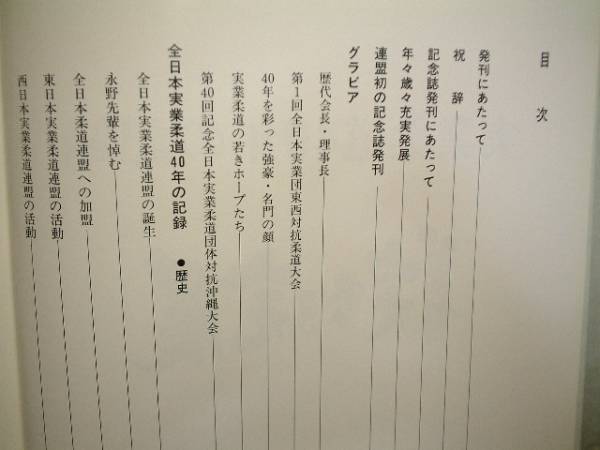 目次
発刊にあたって
祝辞
記念誌発刊にあたって
年々歳々充実発展
連盟初の記念誌発刊
グラビア
歴代会長・理事長
第1回全日本実業団東西対抗柔道大会
40年を彩った強豪・名門の顔
実業柔道の若きホープたち
第40回記念全日本実業柔道団体対抗沖縄大会
全日本実業柔道40年の記録 ●歴史
全日本実業柔道連盟の誕生
永野先輩を悼む
全日本柔道連盟への加盟
東日本実業柔道連盟の活動
西日本実業柔道連盟の活動